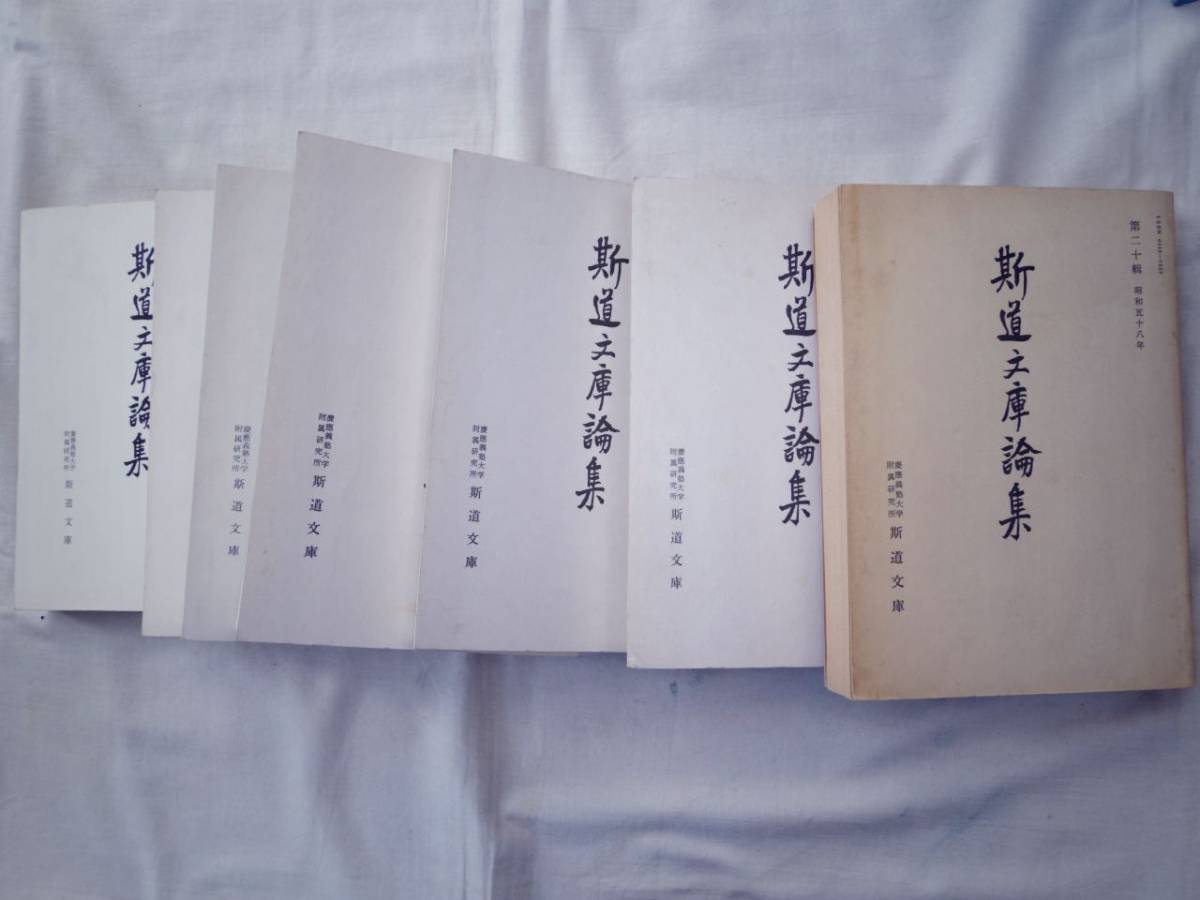 第二十輯 昭和五十八年
斯道文庫論集
慶應義塾大学
附属研究所
斯道文庫
斯道文庫論集
慶應義塾大学
附属研究所
斯道文庫
斯道文庫論集
慶應義塾大学
附属研究所
斯道文庫
慶應義塾大学
附属研究所
斯道文庫
慶應義塾大学
附属研究所
斯道文庫
斯道文庫論集
慶應義塾大学
附属研究所
斯道文庫